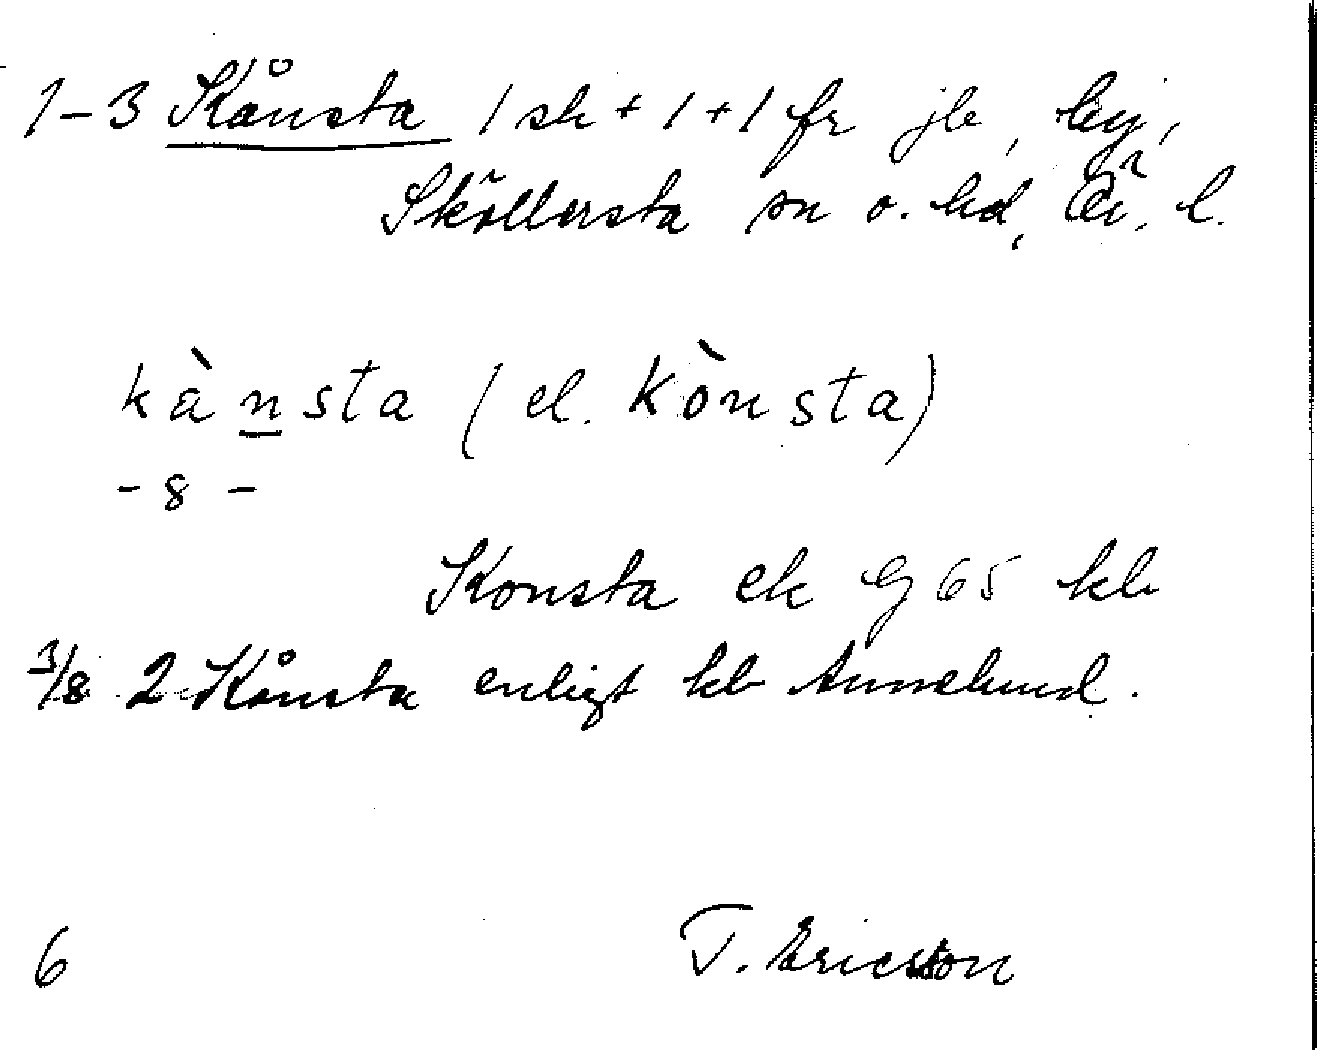 1-3 Kånsta 1 sk + 1 + 1 fr jb, by,
Sköllersta sn o. hd, Ör. l.
kànsta (el. kònsta)
- 8 -
Konsta ek G 65 kb
3/8 2 Kånsta enligt kb Annelund.
6 T. Ericsson